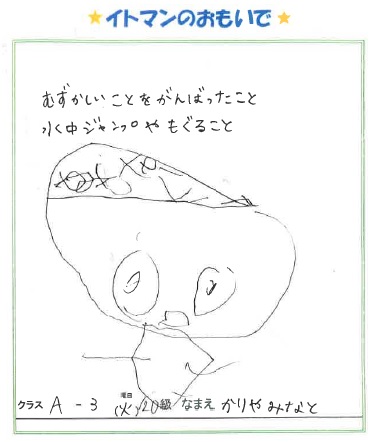 イトマンのおもいで
むずかしいことをがんばったこと
水中ジャンプやもぐること
クラス A - 3 曜日 (火) 20級 なまえ かりや みなと